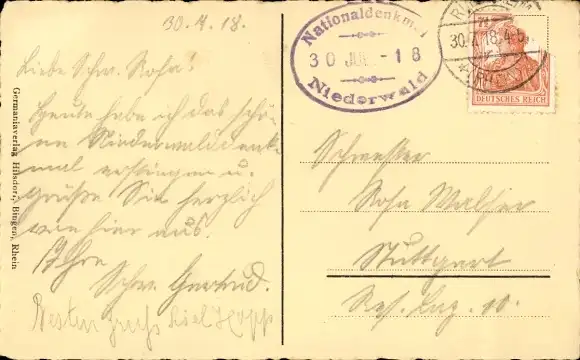 30.7.18.
Liebe Schw. Rosa!
Heute habe ich das schö-
ne Niederwalddenk-
mal erstiegen u.
Grüße Sie herzlich
von hier aus.
Ihre
Schw. Gertrud.
Besten Gruß
Germaniaverlag Hilsdorf, Bingen, Rhein
Nationaldenkmal
30 JUL - 18
Niederwald
30.7.18.4-5
DEUTSCHES REICH
Schwester
Rosa Walser
Stuttgart
Res. Laz. 10.